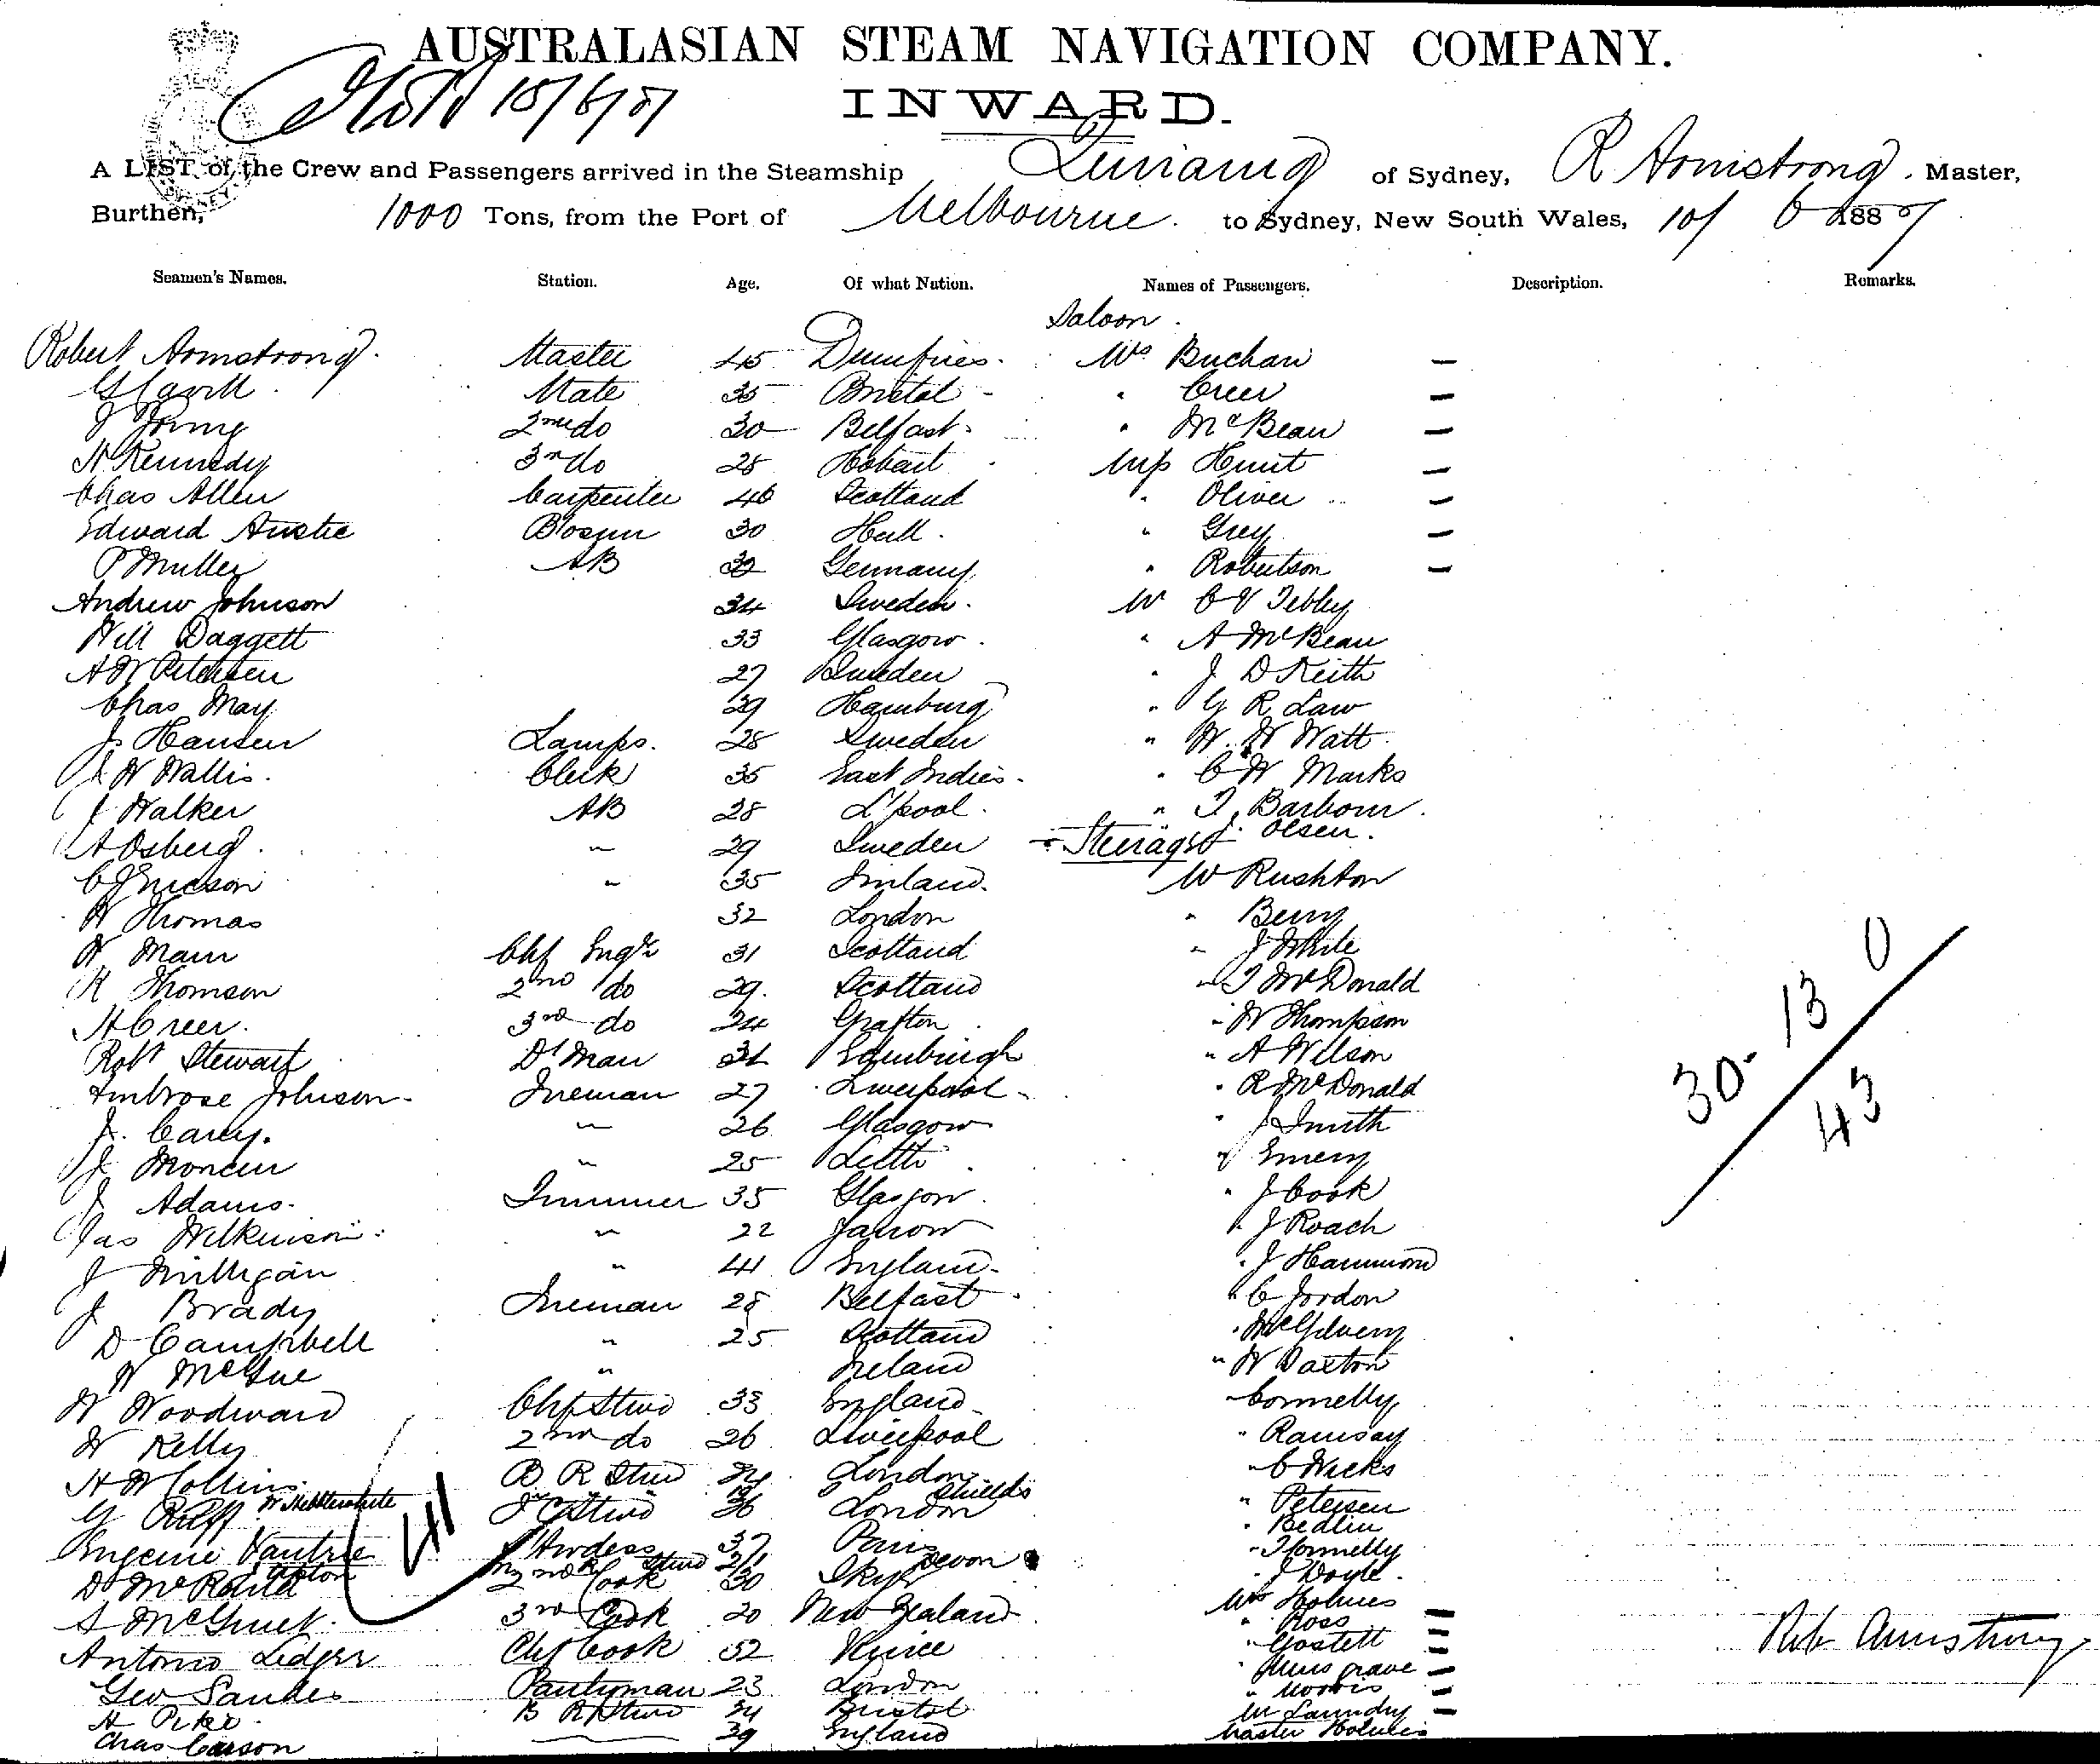 AUSTRALASIAN STEAM NAVIGATION COMPANY.
INWARD.
A LIST of the Crew and Passengers arrived in the Steamship of Sydney, R Armstrong. Master,
Burthen, 1000 Tons, from the Port of Melbourne. to Sydney, New South Wales, 10/ 6 1887
Seamen's Names. Station. Age. Of what Nation. Names of Passengers. Description. Remarks.
Saloon.
Robert Armstrong. Master 45 Dumfries. Mrs Buchan —
Mate 35 Bristol - " Creer —
J Young 2nd do 30 Belfast. " McBean —
H Kennedy 3rd do 28 Hobart Miss Hunt —
Chas Allen Carpenter 46 Scotland " Oliver —
Edward Anstie Bosun 30 Hull. " Grey —
P Muller AB 32 Germany " Robertson —
Andrew Johnson 34 Sweden. Mr C V Tebley
Will Daggett 33 Glasgow. " A McBean
A W Petersen 27 Sweden " J D Keith
Chas May 29 Hamburg " G R Law
J. Hansen Lamps. 28 Sweden " W. W Watt
J W Wallis. Clerk 35 East Indies. " C W Marks
J Walker AB 28 L'pool. " T. Barbour.
A Osberg. " 29 Sweden Steerage J. Olsen.
C J Ericson " 35 Finland. W Rushton
W Thomas 32 London " Berry
W Main Chf Engr 31 Scotland " J White
R Thomson 2nd do 29. Scotland " T McDonald
H Creer. 3rd do 24 Grafton " W Thompson
Robt Stewart Dk man Edinburgh " A Wilson
Ambrose Johnson. Fireman 27 Liverpool. " R McDonald
J. Carey. " 26 Glasgow " J Smith
J " 25 Leith " Emery
J Adams. Trimmer 35 Glasgow. " J Cook
Jas Wilkinson " 22 Jarrow " J Roach
J Milligan " 41 England. " J Hammond
J Brady Fireman 28 Belfast. " C Jordon
D Campbell " 25 Scotland " McGilvery
W McGue " Ireland " W Daxton
W Woodward Chf Stwd 33 England. " Connelly
W Kelly 2nd do 26 Liverpool " Ramsay
H W Collins B R Stwd 24 London " C Wicks
G W Hebblewhite Stwd 36 London Shields " Petersen
" Bedlin
Eugenie Stwdess 37 Paris " Connelly
Upton Stwd 21 Devon " J Doyle.
D 2nd Cook 30 Skye Mrs Holmes
S 3rd Cook 20 New Zealand " Ross —
Antonio Ledger Chf Cook 52 " Gostell —
" Musgrave —
Geo Sandes Pantryman 23 London " Morris —
H Pike B R Stwd 24 Bristol Mr Laundry —
Chas Carson 39 England Master Holmes
30 - 13 0
43
41
Robt Armstrong